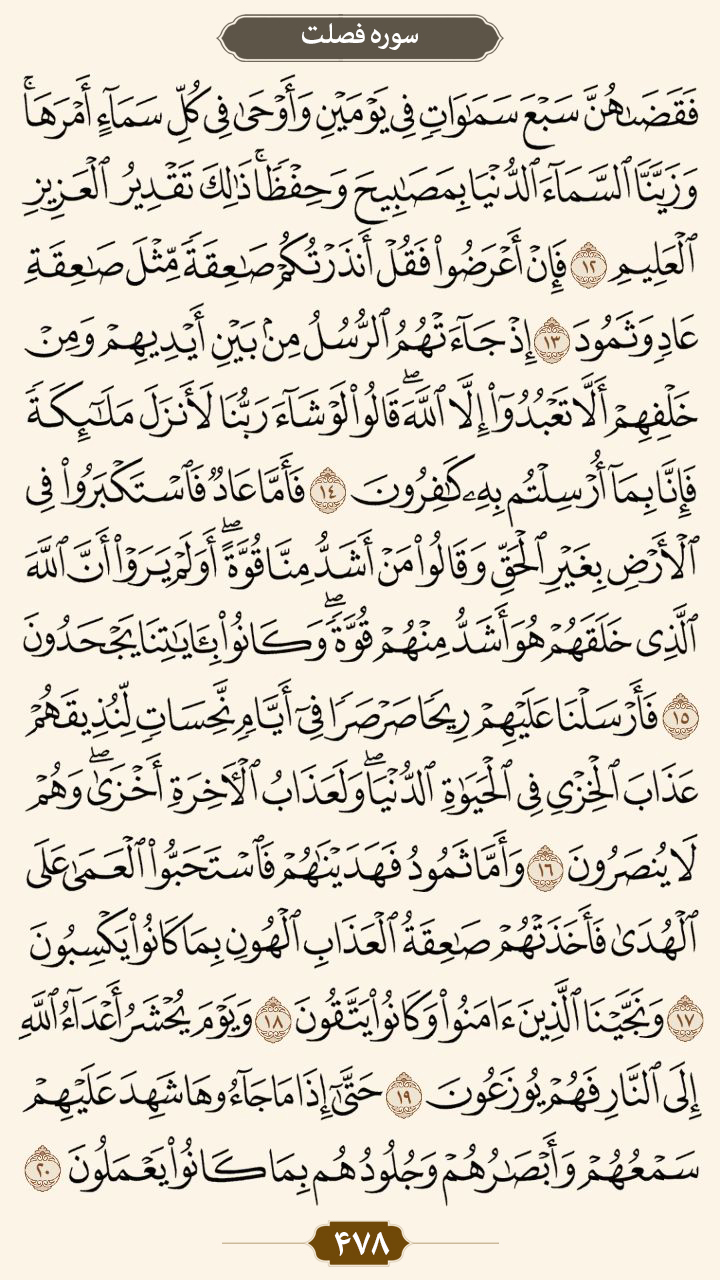 سوره فصلت
فَقَضَىٰهُنَّ سَبْعَ سَمَٰوَاتٍ فِى يَوْمَيْنِ وَأَوْحَىٰ فِى كُلِّ سَمَآءٍ أَمْرَهَا ۚ
وَزَيَّنَّا ٱلسَّمَآءَ ٱلدُّنْيَا بِمَصَٰبِيحَ وَحِفْظًا ۚ ذَٰلِكَ تَقْدِيرُ ٱلْعَزِيزِ
ٱلْعَلِيمِ ١٢ فَإِنْ أَعْرَضُوا۟ فَقُلْ أَنذَرْتُكُمْ صَٰعِقَةً مِّثْلَ صَٰعِقَةِ
عَادٍ وَثَمُودَ ١٣ إِذْ جَآءَتْهُمُ ٱلرُّسُلُ مِنۢ بَيْنِ أَيْدِيهِمْ وَمِنْ
خَلْفِهِمْ أَلَّا تَعْبُدُوٓا۟ إِلَّا ٱللَّهَ ۖ قَالُوا۟ لَوْ شَآءَ رَبُّنَا لَأَنزَلَ مَلَٰٓئِكَةً
فَإِنَّا بِمَآ أُرْسِلْتُم بِهِۦ كَٰفِرُونَ ١٤ فَأَمَّا عَادٌ فَٱسْتَكْبَرُوا۟ فِى
ٱلْأَرْضِ بِغَيْرِ ٱلْحَقِّ وَقَالُوا۟ مَنْ أَشَدُّ مِنَّا قُوَّةً ۖ أَوَلَمْ يَرَوْا۟ أَنَّ ٱللَّهَ
ٱلَّذِى خَلَقَهُمْ هُوَ أَشَدُّ مِنْهُمْ قُوَّةً ۖ وَكَانُوا۟ بِـَٔايَٰتِنَا يَجْحَدُونَ
١٥ فَأَرْسَلْنَا عَلَيْهِمْ رِيحًا صَرْصَرًا فِىٓ أَيَّامٍ نَّحِسَاتٍ لِّنُذِيقَهُمْ
عَذَابَ ٱلْخِزْىِ فِى ٱلْحَيَوٰةِ ٱلدُّنْيَا ۖ وَلَعَذَابُ ٱلْءَاخِرَةِ أَخْزَىٰ ۖ وَهُمْ
لَا يُنصَرُونَ ١٦ وَأَمَّا ثَمُودُ فَهَدَيْنَٰهُمْ فَٱسْتَحَبُّوا۟ ٱلْعَمَىٰ عَلَى
ٱلْهُدَىٰ فَأَخَذَتْهُمْ صَٰعِقَةُ ٱلْعَذَابِ ٱلْهُونِ بِمَا كَانُوا۟ يَكْسِبُونَ
١٧ وَنَجَّيْنَا ٱلَّذِينَ ءَامَنُوا۟ وَكَانُوا۟ يَتَّقُونَ ١٨ وَيَوْمَ يُحْشَرُ أَعْدَآءُ ٱللَّهِ
إِلَى ٱلنَّارِ فَهُمْ يُوزَعُونَ ١٩ حَتَّىٰٓ إِذَا مَا جَآءُوهَا شَهِدَ عَلَيْهِمْ
سَمْعُهُمْ وَأَبْصَٰرُهُمْ وَجُلُودُهُم بِمَا كَانُوا۟ يَعْمَلُونَ ٢٠
۴۷۸